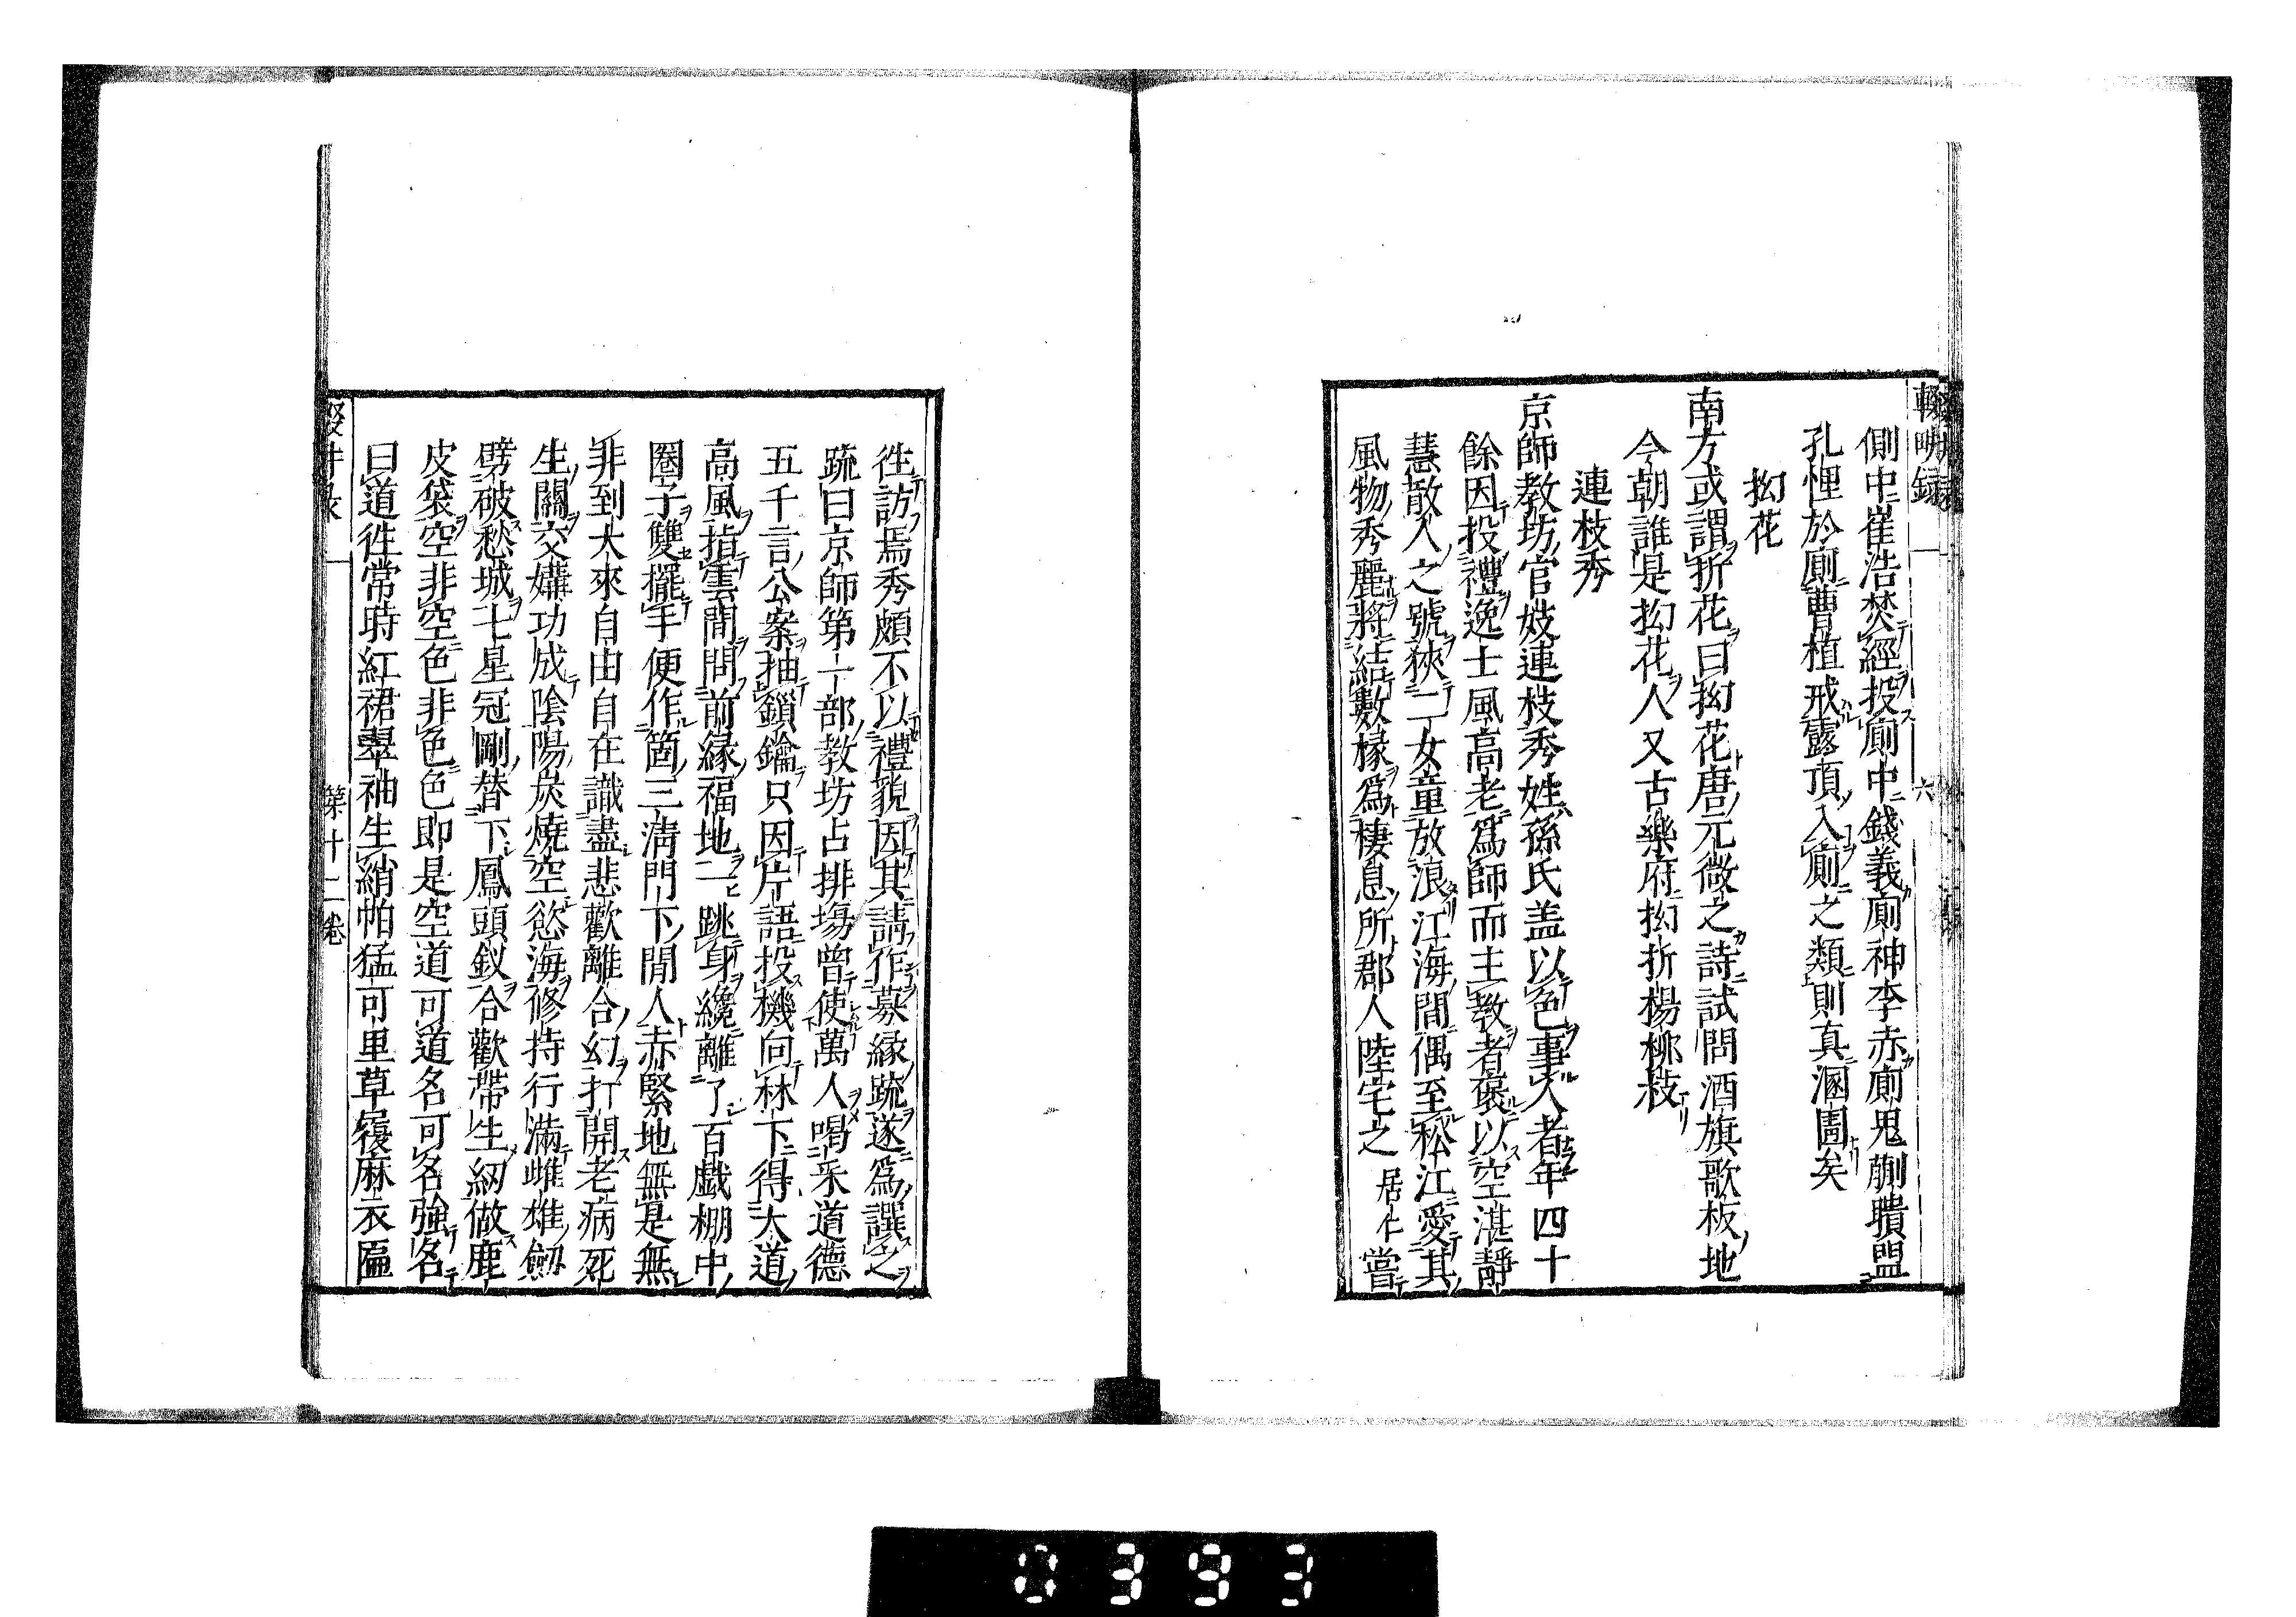 輟畊録 六
側中崔浩焚經投廁中錢義廁神李赤廁鬼蒯聵盟
孔悝於廁曹植戒露頂入廁之類則真溷圊矣
拗花
南方或謂折花曰拗花唐元微之詩試問酒旗歌板地
今朝誰是拗花人又古樂府拗折楊柳枝
連枝秀
京師教坊官妓連枝秀姓孫氏盖以色事人者年四十
餘因投禮逸士風高老爲師而主教者褒以空湛靜
慧散人之號挾二女童放浪江海間偶至松江愛其
風物秀麗將結數椽爲棲息所郡人陸宅之居仁嘗
徃訪焉秀頗不以禮貌因其請作募縁疏遂爲譔之
疏曰京師第一部教坊占排塲曾使萬人喝采道德
五千言公案抽鎖鑰只因片語投機向林下得大道
高風指雲間問前縁福地一跳身纔離了百戲棚中
圈子雙擺手便作箇三淸門下閒人赤緊地無是無
非到大來自由自在識盡悲歡離合幻打開老病死
生關交媾功成陰陽炭燒空慾海修持行滿雌雄劒
劈破愁城七星冠剛替下鳳頭釵合歡帶生紉做鹿
皮袋空非空色非色色即是空道可道名可名強名
曰道徃常時紅裙翠袖生綃帕猛可里草履麻衣匾
輟畊录 第十二巻
0393